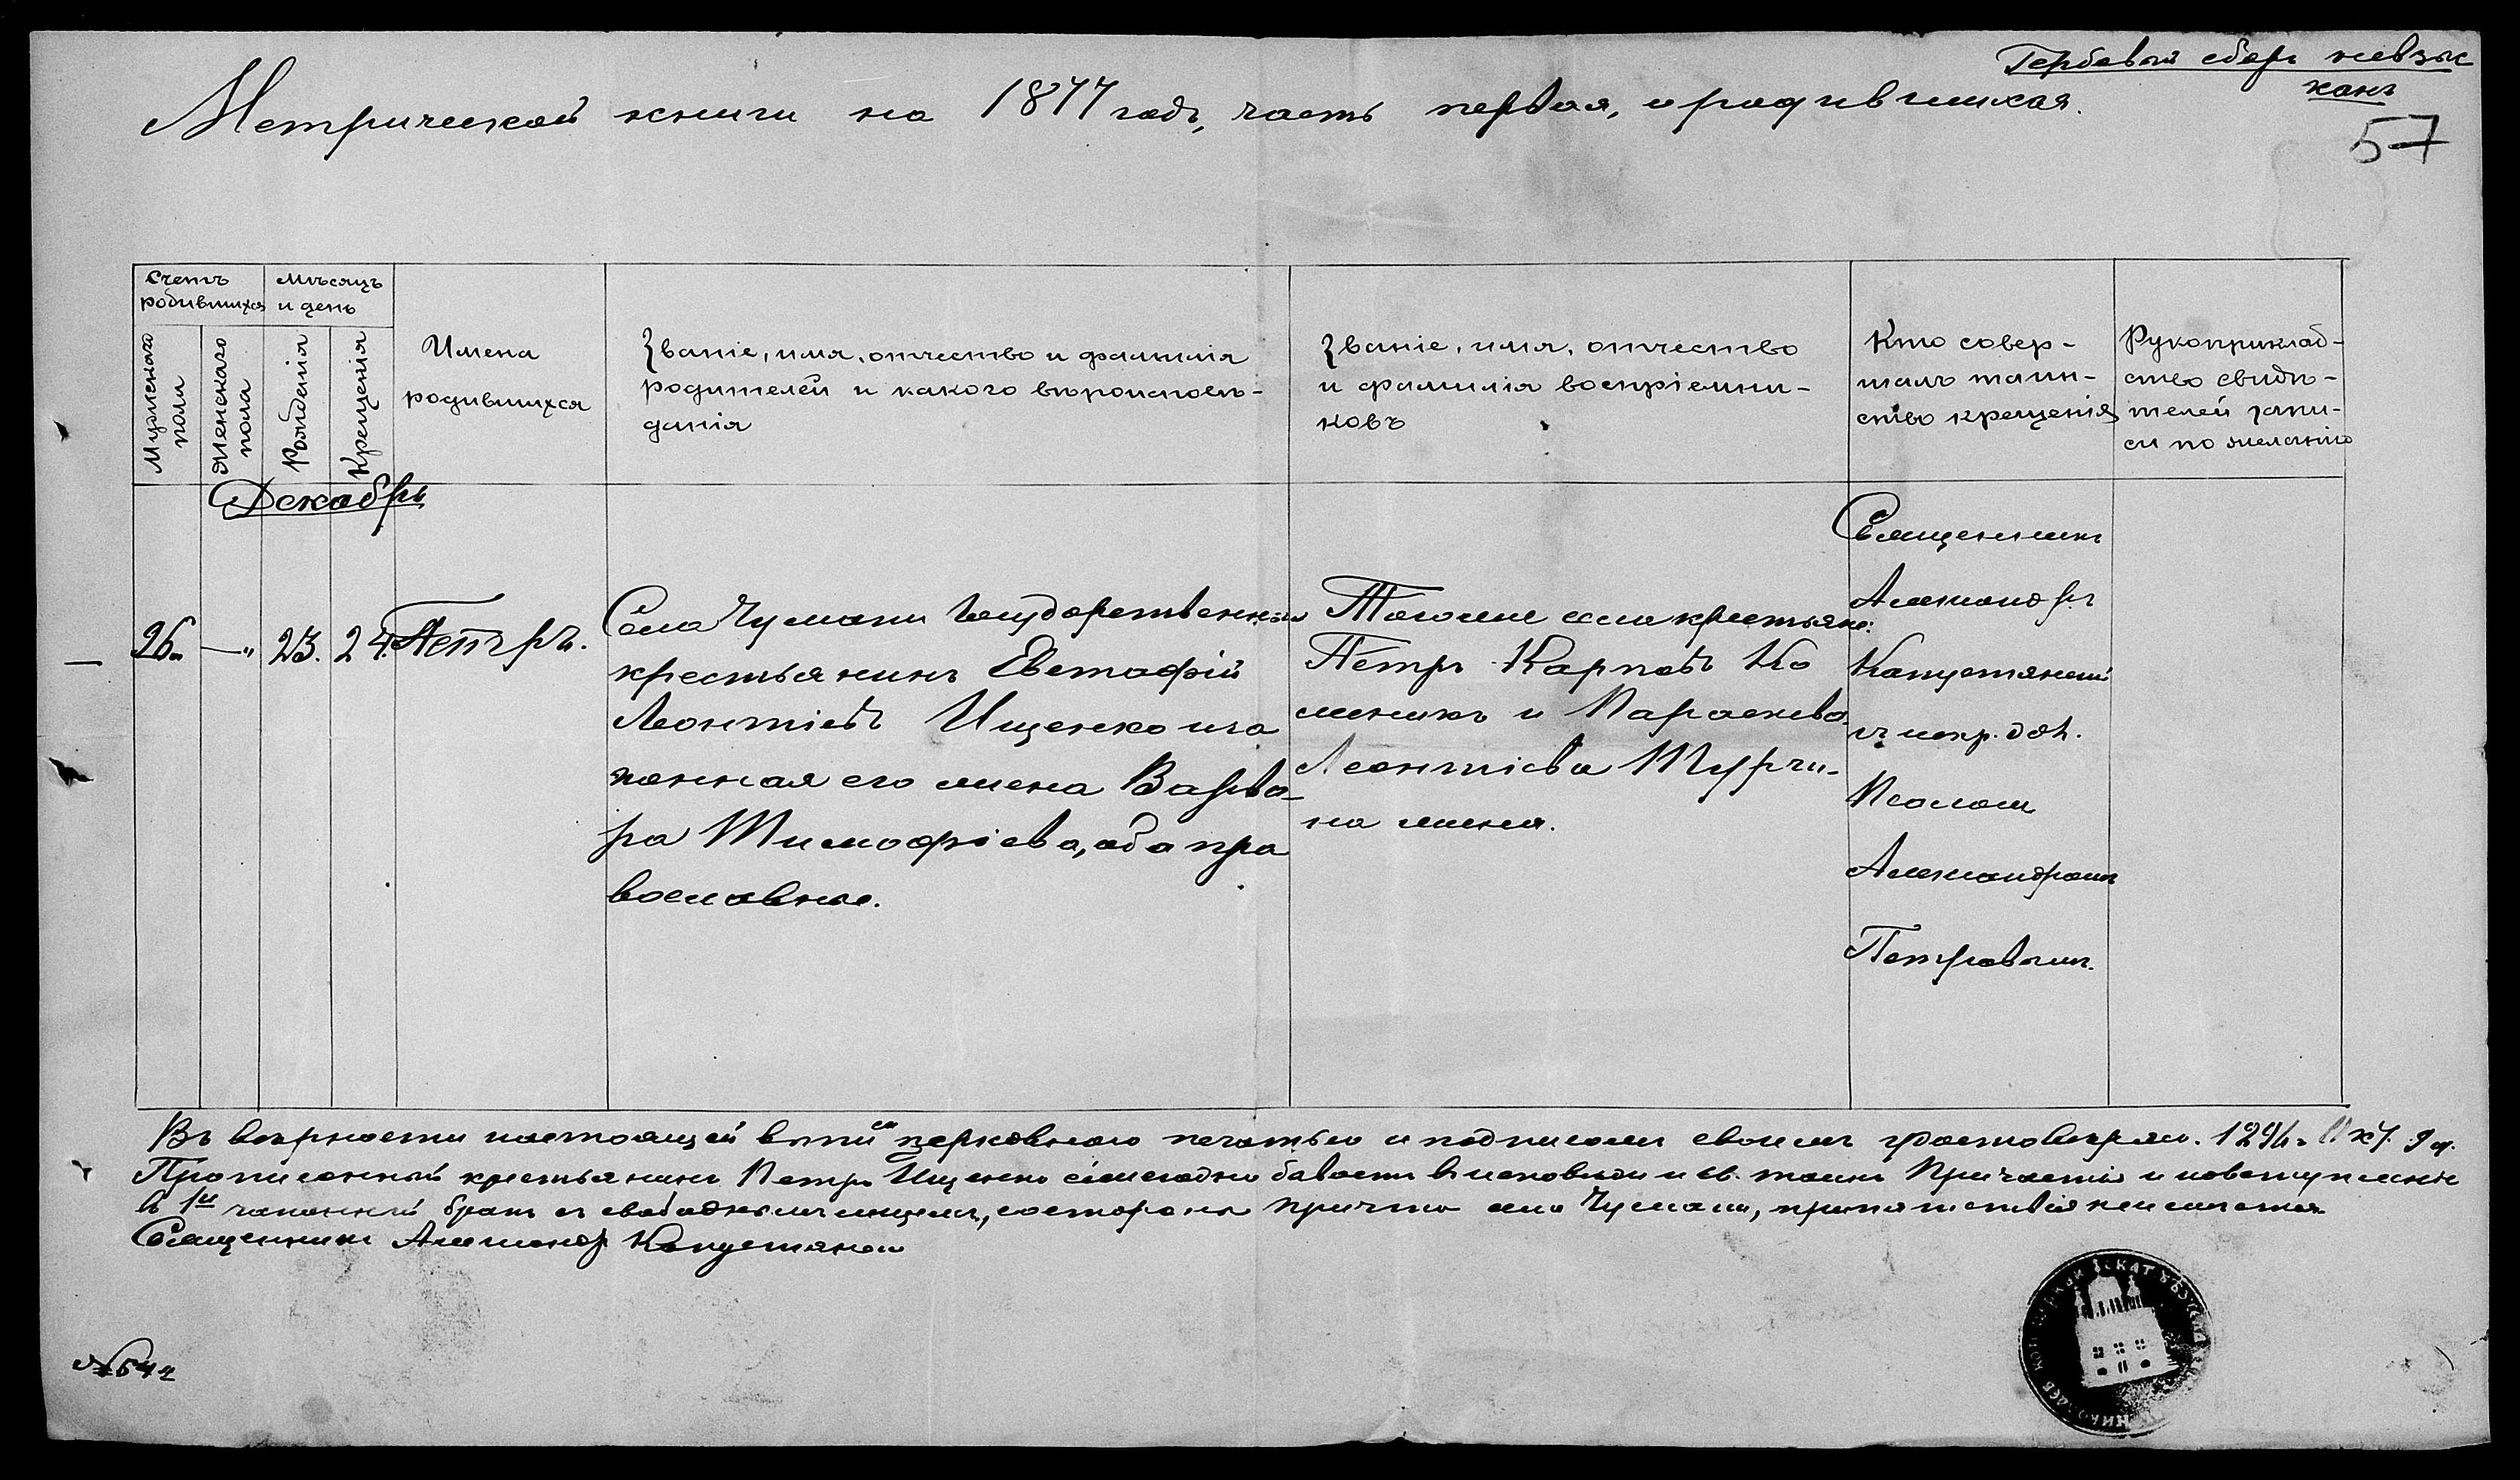 Гербовый сборъ невзыс
канъ
57
Метрической книги на 1877 годъ, часть первая, о родившихся.
Счетъ родившихся
Мѣсяцъ и день
Мужескаго пола
Женскаго пола
Рожденія
Крещенія
Имена
родившихся
Званіе, имя, отчество и фамилія
родителей и какого вѣроисповѣ-
данія
Званіе, имя, отчество
и фамилія воспріемни-
ковъ
Кто совер-
шалъ таин-
ство крещенія
Рукоприклад-
ство свидѣ-
телей запи-
си по желанію
Декабрь
26. —„ 23. 24. Петръ.
Села Чумани Государственный
крестьянинъ Евстафій
Леонтіевъ Ищенко и за
конная его жена Варва-
ра Тимофіева, оба пра
вославные.
Тогоже села крестьяне:
Петръ Карповъ Ко
женикъ и Параскева
Леонтіева Турчи-
на жена.
Священникъ
Александръ
Капустянскій
съ испр. дол.
Псалом
Александромъ
Петровымъ.
Въ вѣрности настоящей выписи церковною печатью и подписомъ своимъ удостовѣряю.
Прописанный крестьянинъ Петръ Ищенко ежегодно бываетъ в исповѣди и св. таинъ Причастія и
в 1й законный бракъ съ свободнымъ лицемъ, со стороны причта села Чумани, препятствія не имѣется.
Священникъ Александръ Капустянскій
№ 542